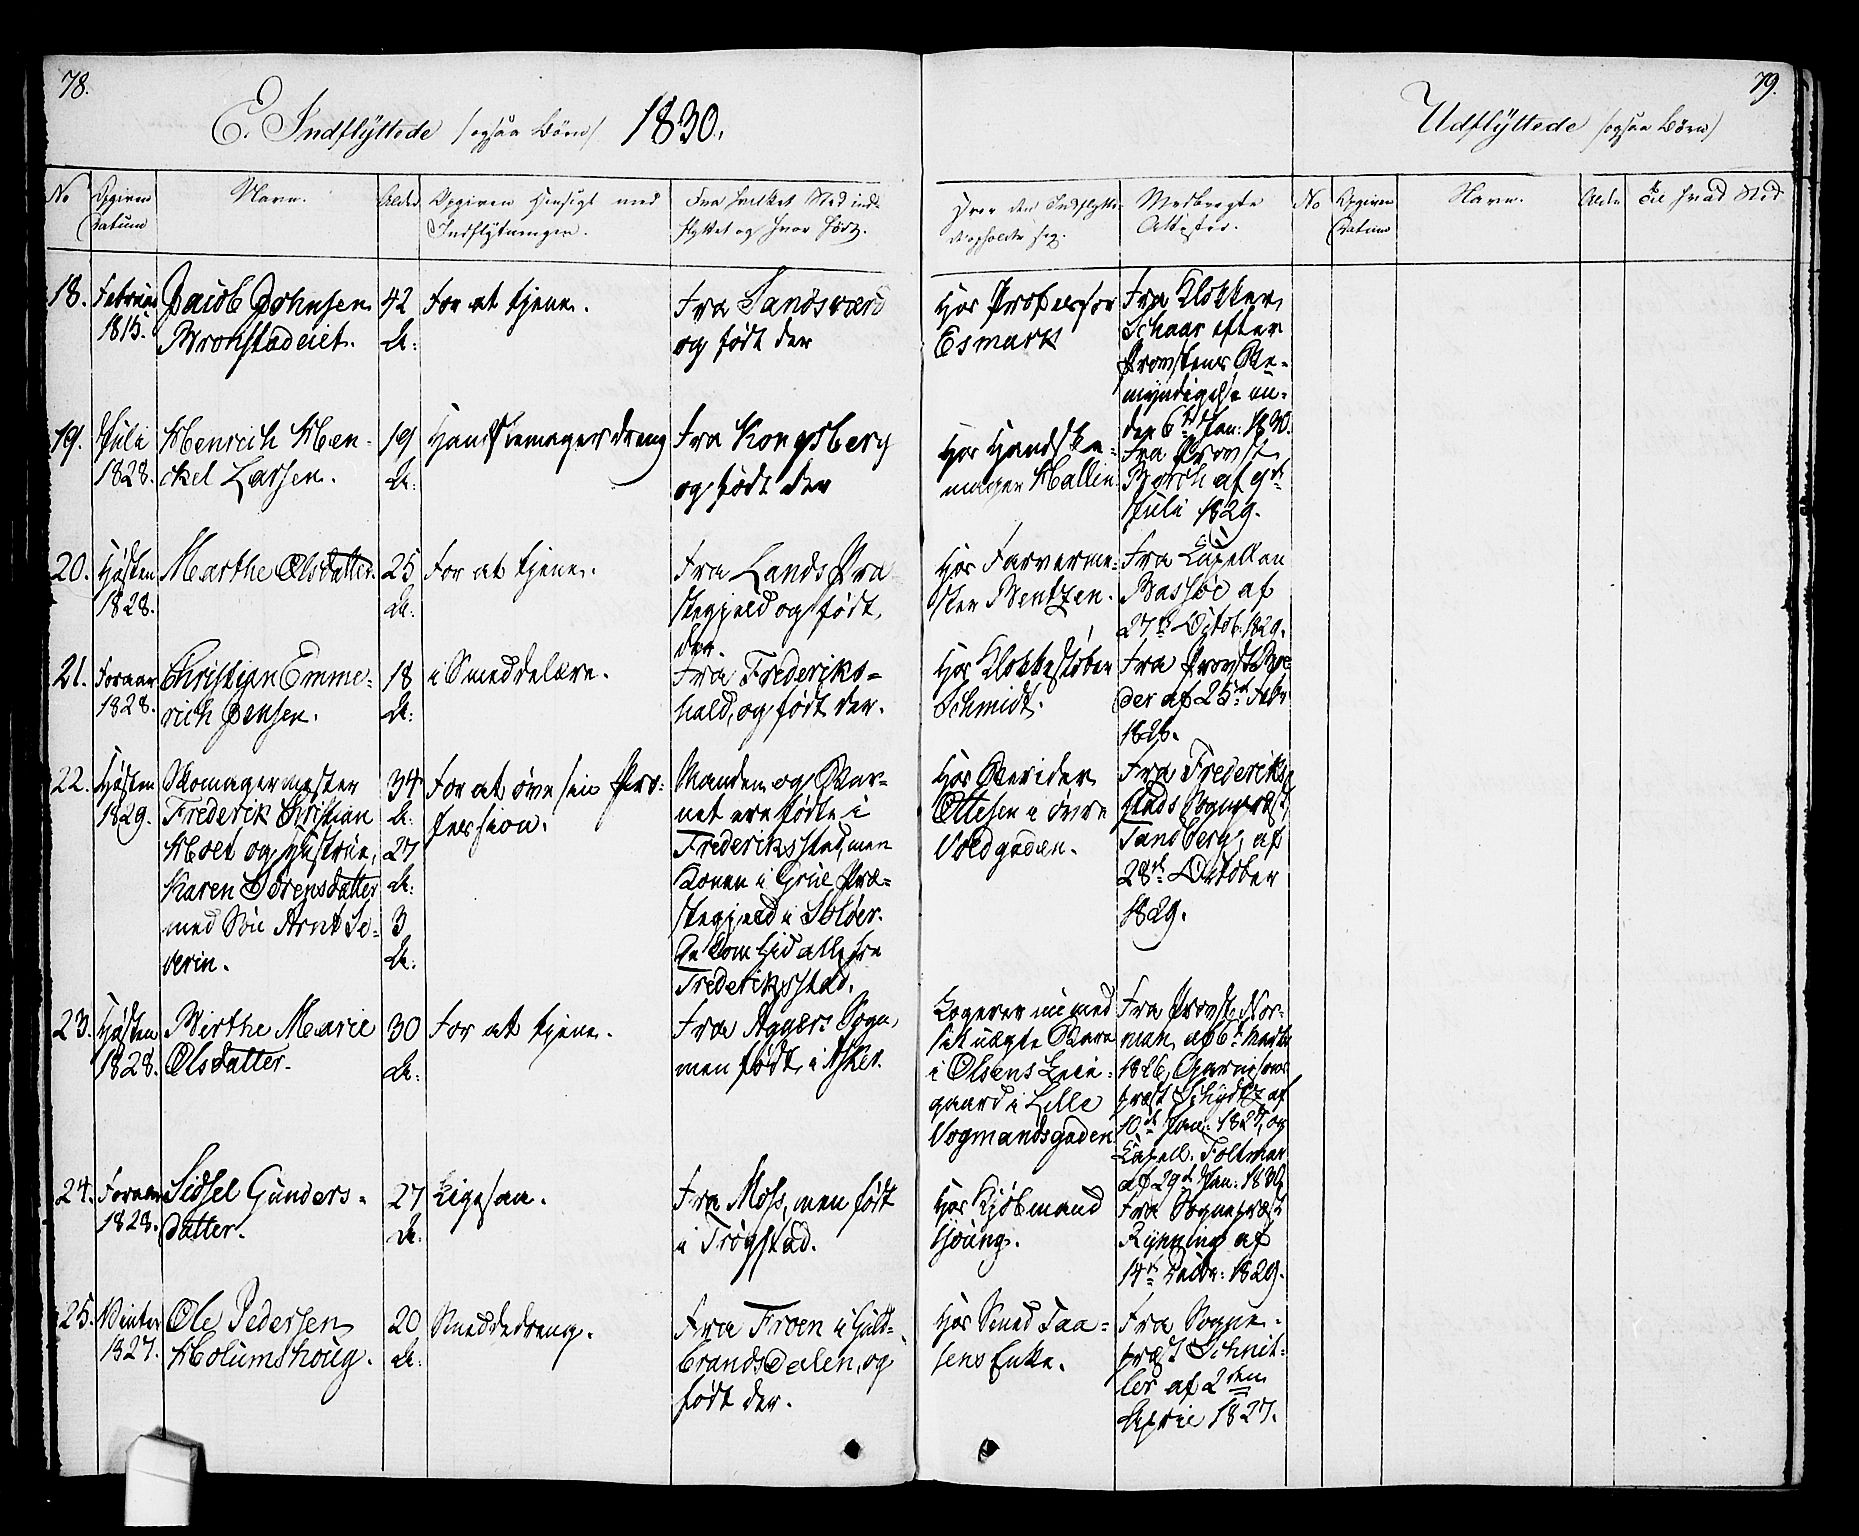 78.
E. Indflÿttede /ogsaa Börn/ 1830.
No
Opgiven Datum
Navn.
Alder
Opgiven Hensigt med Indflÿtningen.
Fra hvilket Sted ind-
flyttet og hvor födt.
Hvor den Indflytte-
de opholder sig.
Medbragte
Attester.
18. Februar
1815.
Jacob Johnsen
Bronstadeiet.
42
A:
For at tjene.
Fra Sandsværd
og födt der
Hos Professor
Esmark
Fra Klokker
Schaar efter
Provstens Be-
myndigelse un-
der 6te Jan: 1830.
19. Juli
1828.
Henrich Hen-
ckel Larsen.
19
A:
Handskemagerdreng
Fra Kongsberg
og födt der
Hos Handske-
mager Hallin
Fra Provst
Borch af 9de
Juli 1829.
20. Hösten
1828.
Marthe Olsdatter.
25
A:
For at tjene.
Fra Lands Præ
stegjeld og födt
der.
Hos Farverme-
ster Bentzen.
Fra Capellan
Bassöe af
27de Octob: 1829.
21. Foraar
1828.
Christian Emme-
rich Jensen.
18
A:
i Smeddelære.
Fra Frederiks-
hald, og födt der.
Hos Klokkestöber
Schmidt.
Fra Provst
der af 25de Febr
1828.
22. Hösten
1829.
Skomagermester
Frederik Christian
Hoel og Hustrue,
Karen Sörensdatter
med Sön Arnt Se-
verin.
34
A:
27
A:
3
A:
For at öve sin Pro-
fession.
Manden og Bar-
net ere födte i
Frederiksstad, men
Konen i Grue Præ-
stegjeld i Solöer.
De kom hid alle fra
Frederiksstad.
Hos Berider
Ottesen i övre
Voldgaden.
Fra Frederiks-
stads Sognepræst
Tandberg, af
28de October
1829.
23. Hösten
1828.
Birthe Marie
Olsdatter.
30
A:
For at tjene.
Fra Aggers Sogn,
men födt i Asker.
Logerer nu med
sit uægte Barn
i Olsens Leie-
gaard i Lille
Vogmandsgaden
Fra Provst Nor-
man af 6te Marts
1826, Garnisons
præst Schydtz af
10de Jan: 1827, og
Capell. Foltmar
af 29de Jan: 1830
24. Foraar
1828.
Sidsel Gunders-
datter.
27
A:
Ligesaa.
Fra Moss, men födt
i Trögstad.
Hos Kjöbmand
Hjöung.
Fra Sognepræst
Rynning af
14de Decbr: 1829.
25. Vinter
1827.
Ole Pedersen
Holumshoug.
20
A:
Smeddedreng.
Fra Froen i Guld-
brandsdalen, og
födt der.
Hos Smed Taa-
sens Enke.
Fra Sogne-
præst Schnit-
ler af 2den
April 1827.
79.
Udflÿttede /ogsaa Börn/
No
Opgiven Datum
Navn.
Alder
Til hvad Sted